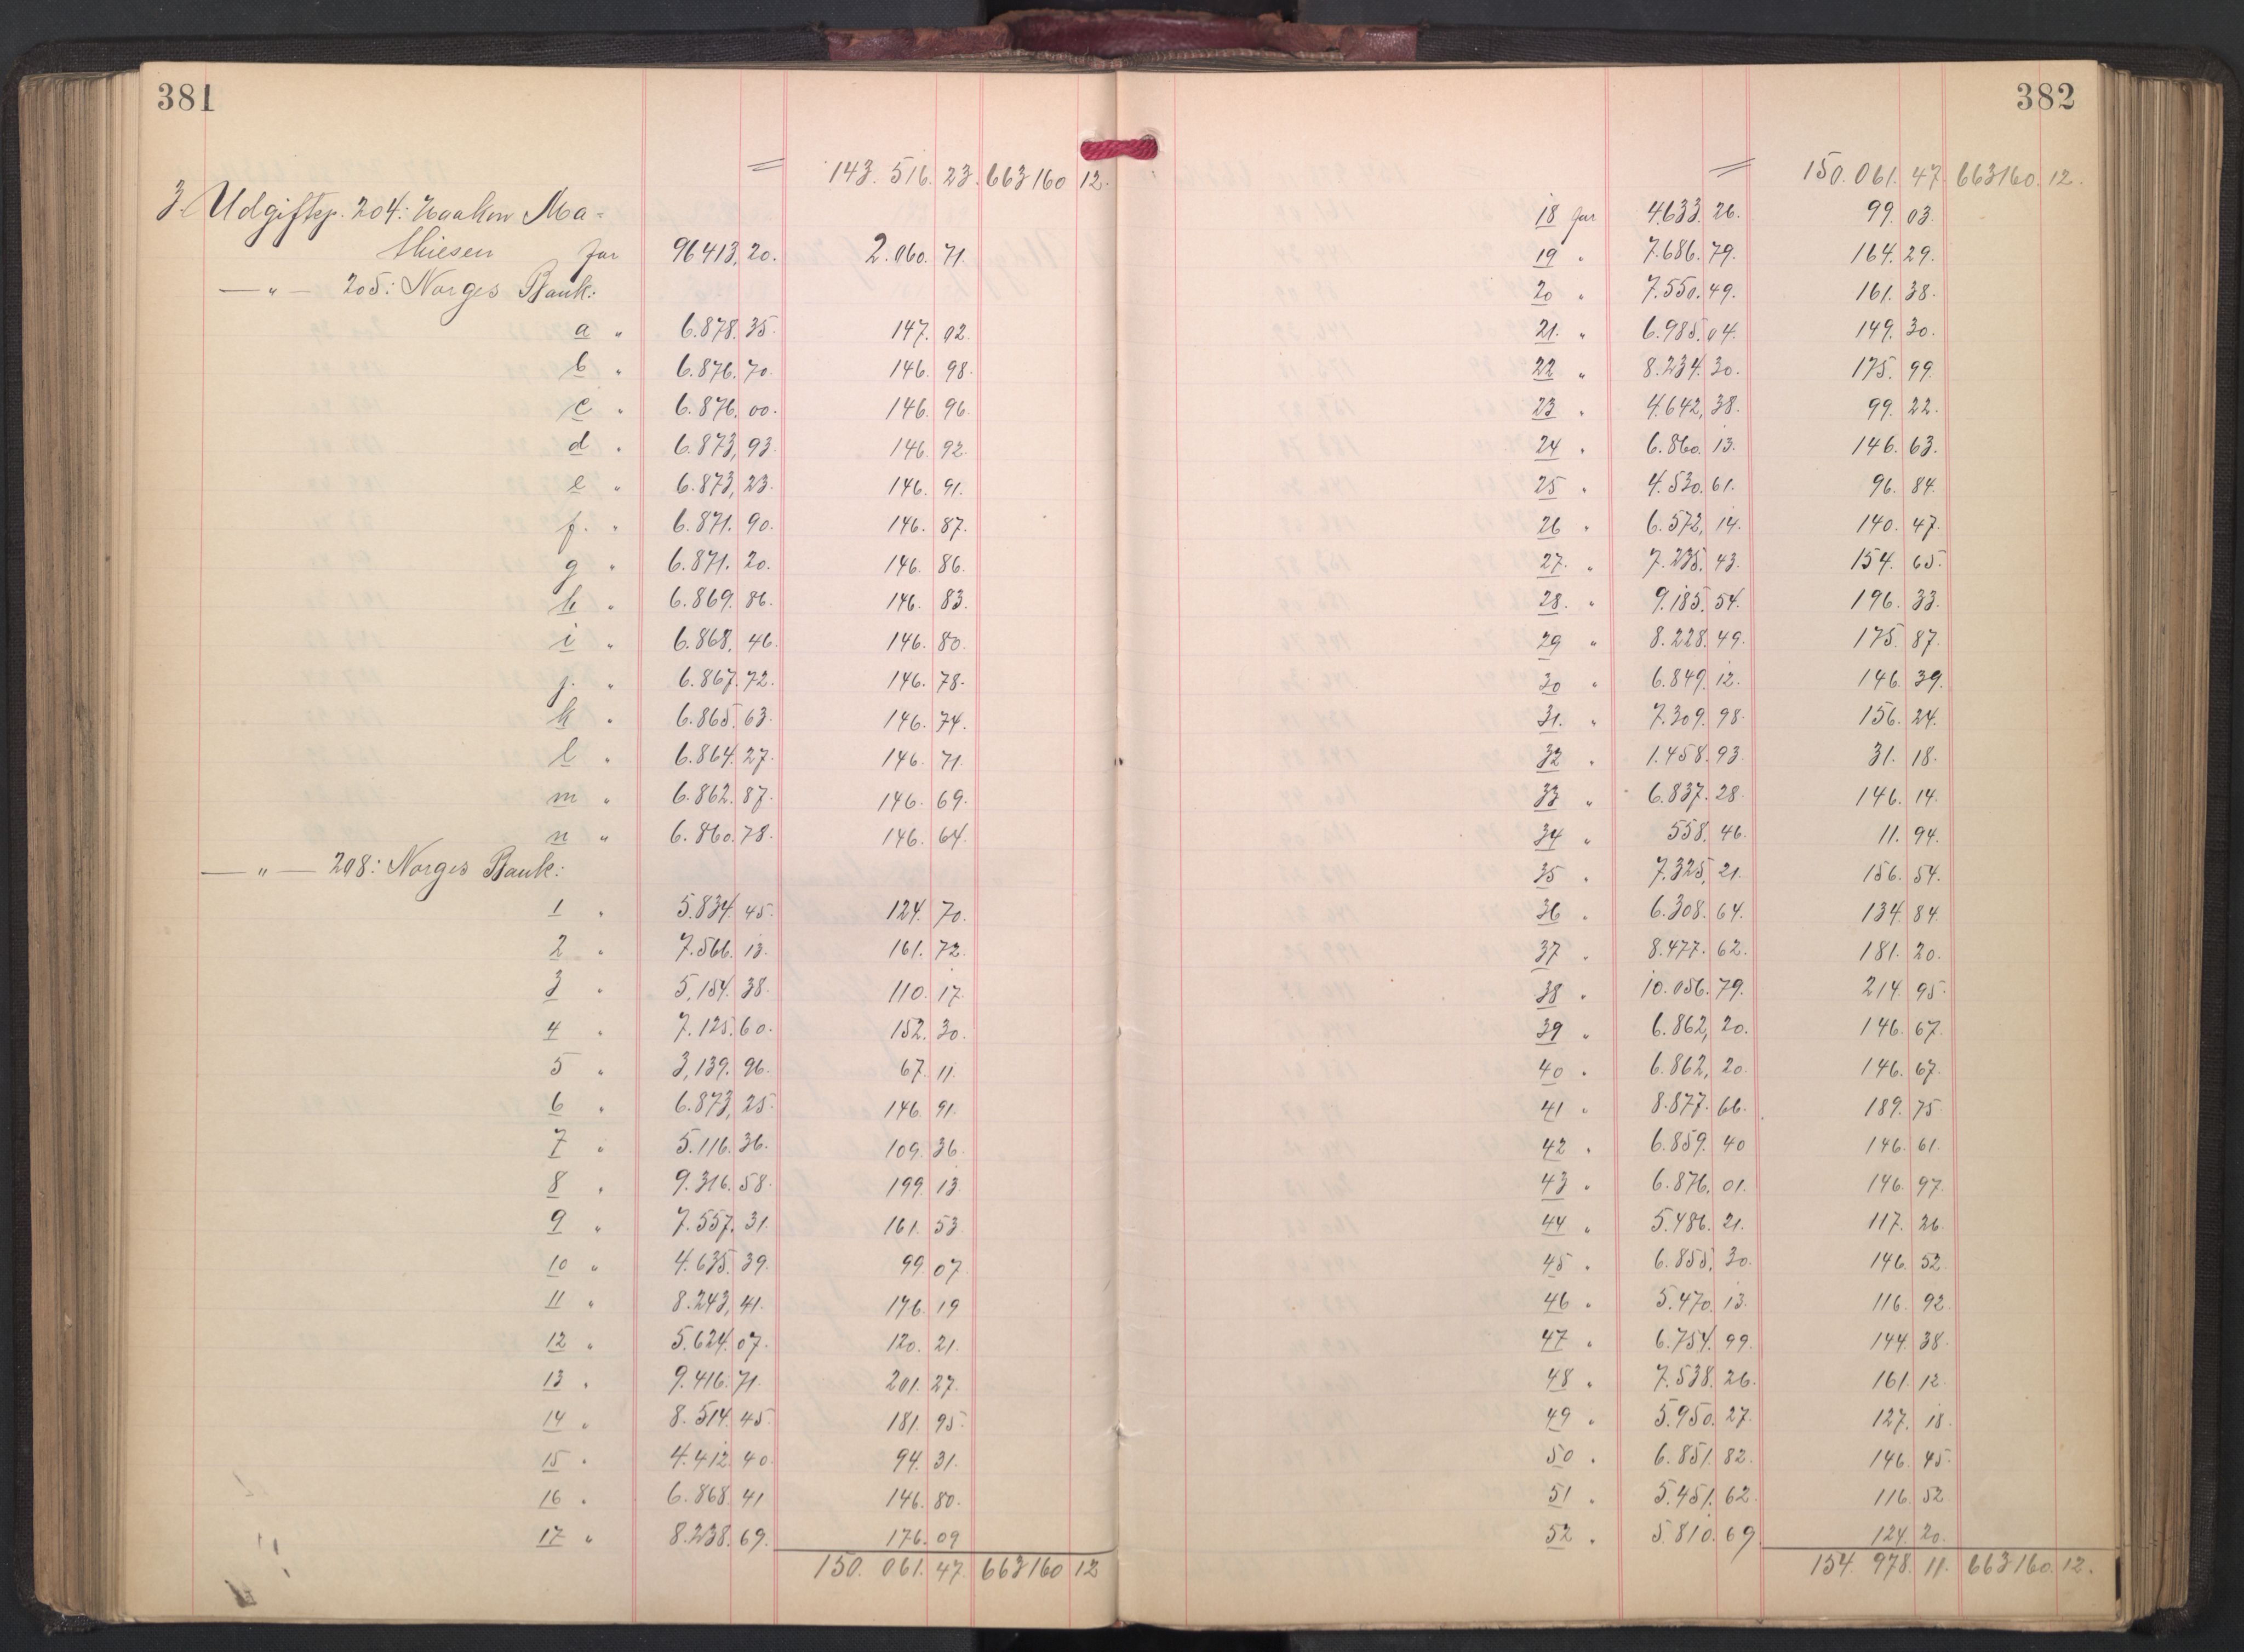 381
= 143.516.23. 663160 12.
3. Udgiftsp. 204: Haakon Ma=
thiesen for 96413,20. 2.060.71.
—〃— 205: Norges Bank:
a 〃 6.878.35. 147.02.
b 〃 6.876.70. 146.98.
c 〃 6.876,00. 146.96.
d 〃 6.873,93. 146.92.
e 〃 6.873,23. 146.91.
f. 〃 6.871.90. 146.87.
g 〃 6.871.20. 146.86.
h 〃 6.869.86. 146.83.
i 〃 6.868,46. 146.80.
j. 〃 6.867.72. 146.78.
k 〃 6.865.63. 146.74.
l 〃 6.864.27. 146.71.
m 〃 6.862.87. 146.69.
n 〃 6.860.78. 146.64.
—〃— 208: Norges Bank:
1 〃 5.834.45. 124.70.
2 〃 7.566.13. 161.72.
3 〃 5,154.38. 110.17.
4 〃 7.125.60. 152.30.
5 〃 3,139.96. 67.11.
6 〃 6.873,25. 146.91.
7 〃 5.116.36. 109.36.
8 〃 9.316.58. 199.13.
9 〃 7.557.31. 161.53
10 〃 4.635.39. 99.07.
11 〃 8.243,41. 176.19
12 〃 5.624.07. 120.21.
13 〃 9.416.71. 201.27.
14 〃 8.514.45. 181.95.
15 〃 4.412.40. 94.31.
16 〃 6.868.41 146.80.
17 〃 8.238.69. 176.09
150.061.47. 663160 12
382
= 150.061.47. 663160.12.
18 for 4633.26. 99.03.
19 〃 7.686.79. 164.29.
20 〃 7.550.49. 161.38.
21. 〃 6.985.04. 149.30.
22 〃 8.234.30. 175.99.
23 〃 4.642,38. 99.22.
24 〃 6.860.13. 146.63.
25 〃 4.530.61. 96.84.
26 〃 6.572,14. 140.47.
27. 〃 7.235.43. 154.65.
28. 〃 9.185.54. 196.33.
29 〃 8.228.49. 175.87.
30 〃 6.849.12. 146.39.
31. 〃 7.309.98. 156.24.
32 〃 1.458.93. 31.18.
33 〃 6.837.28. 146.14.
34 〃 558.46. 11.94.
35 〃 7.325,21. 156.54.
36 〃 6.308.64. 134.84.
37 〃 8.477.62. 181.20.
38 〃 10.056.79. 214.95.
39 〃 6.862,20. 146.67.
40 〃 6.862,20. 146.67.
41 〃 8.877.66. 189.75
42 〃 6.859.40 146.61.
43 〃 6.876,01. 146.97.
44 〃 5.486.21. 117.26.
45 〃 6.855,30. 146.52.
46 〃 5.470.13. 116.92.
47 〃 6.754.99. 144.38.
48 〃 7.538.26. 161.12.
49 〃 5.950.27. 127.18.
50 〃 6.851.82. 146.45.
51 〃 5.451.62. 116.52
52 〃 5.810.69 124.20.
154.978.11. 663160.12.